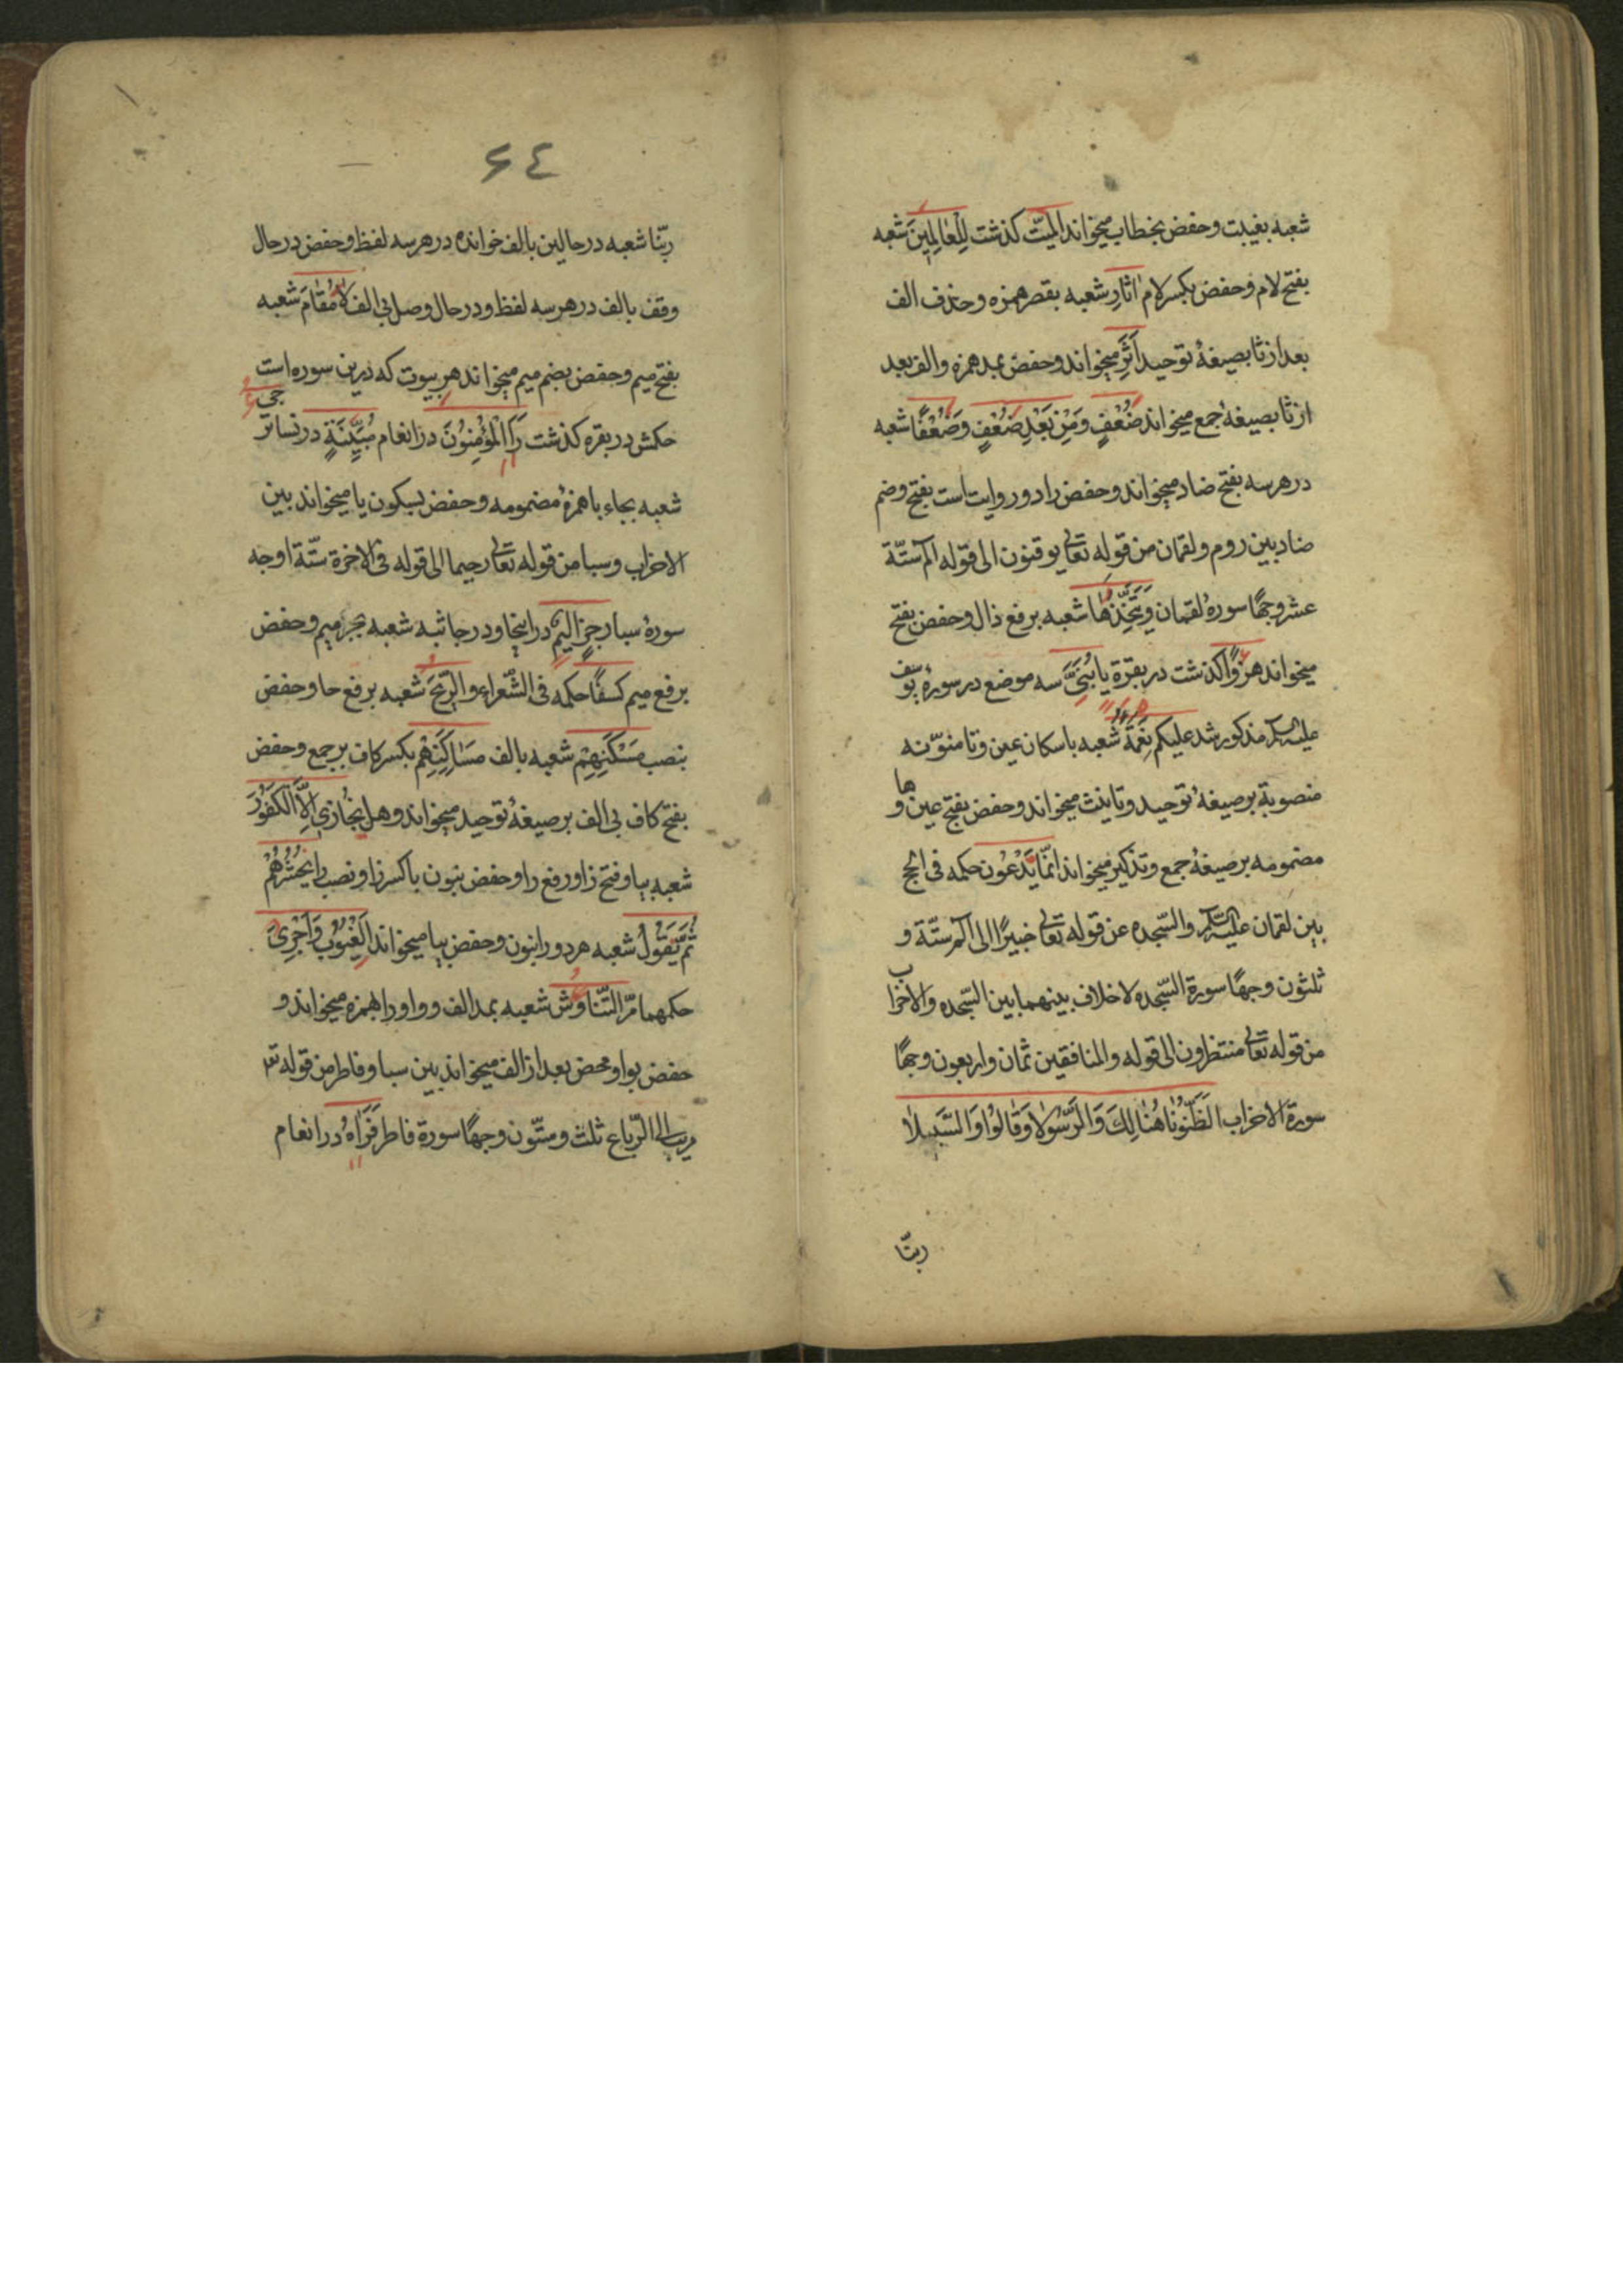 شعبه بغیبت و حفص بخطاب میخواند المیّت کذشت لِلْعَالِمِینَ شعبه
بفتح لام و حفص بکسر لام اثارِ شعبه بقصر همزه و حذف الف
بعد از ثا بصیغهٔ توحید اَثَرِ میخواند و حفص بمد همزه و الف بعد
از ثا بصیغهٔ جمع میخواند ضُعْفٍ وَمِنْ بَعْدِ ضُعْفٍ وَضُعْفًا شعبه
در هر سه بفتح ضاد میخواند و حفص را دو روایت است بفتح و ضم
ضاد بین روم و لقمان من قوله تعالی یوقنون الی قوله الم ستّة
عشر وجهًا سورهٔ لقمان وَیَتَّخِذَهَا شعبه برفع ذال و حفص بفتح
میخواند هزوًا کذشت در بقرة یا بُنَیَّ سه موضع در سورهٔ یوسف
علیه السلام مذکور شد علیکم نِعَمَهُ شعبه باسکان عین و تا منوّنه
منصوبة بر صیغهٔ توحید و تانیث میخواند و حفص بفتح عین و ها
مضمومه بر صیغهٔ جمع و تذکیر میخواند انّما یَدْعُون حکمه فی الحج
بین لقمان علیه السلام والسّجده عن قوله تعالی خبیرًا الی الم ستّة و
ثلثون وجهًا سورة السّجده لا خلاف بینهما بین السّجده والاحزاب
من قوله تعالی منتظرون الی قوله والمنافقین ثمان واربعون وجهًا
سورة الاحزاب الظّنُونَا هُنَالِكَ وَالرَّسُولَا وَقَالُوا وَالسَّبِیلَا
ربّنا
۶٤
ربّنا شعبه در حالین بالف خوانده در هر سه لفظ و حفص در حال
وقف بالف در هر سه لفظ و در حال وصل بی الف لَا مُقَامَ شعبه
بفتح میم و حفص بضم میم میخواند هر بیوت که درین سوره است
حکمش در بقره کذشت رَاَ الْمُؤْمِنُونَ در انعام مُبَیِّنَةٍ در نسا ترجی
شعبه بجاء یا همزهٔ مضمومه و حفص بسکون یا میخواند بین
الاحزاب و سبا من قوله تعالی رحیما الی قوله فی الاخرة ستّة اوجه
سورهٔ سبا رِجْزٍ اَلِیمٍ در اینجا و در جاثیه شعبه بجرّ میم و حفص
برفع میم کسفًا حکمه فی الشّعراء والرّیحَ شعبه برفع حا و حفص
بنصب مَسْکَنِهِمْ شعبه بالف مَسَاکِنِهِمْ بکسر کاف بر جمع و حفص
بفتح کاف بی الف بر صیغهٔ توحید میخواند و هل نُجَازِی اِلَّا الْکَفُورَ
شعبه بیا و فتح زا و رفع را و حفص بنون با کسر زا و نصب را یَحْشُرُهُمْ
ثُمَّ یَقُولُ شعبه هر دو را بنون و حفص بیا میخواند الغُیُوبِ وَاَجْرِیَ
حکمهما مرّ التّناوش شعبه بمد الف و واو را بهمزه میخواند و
حفص بواو محض بعد از الف میخواند بین سبا و فاطر من قوله تع
مریب الی الرّباع ثلث و ستّون وجهًا سورة فاطر فَرَاهُ در انعام